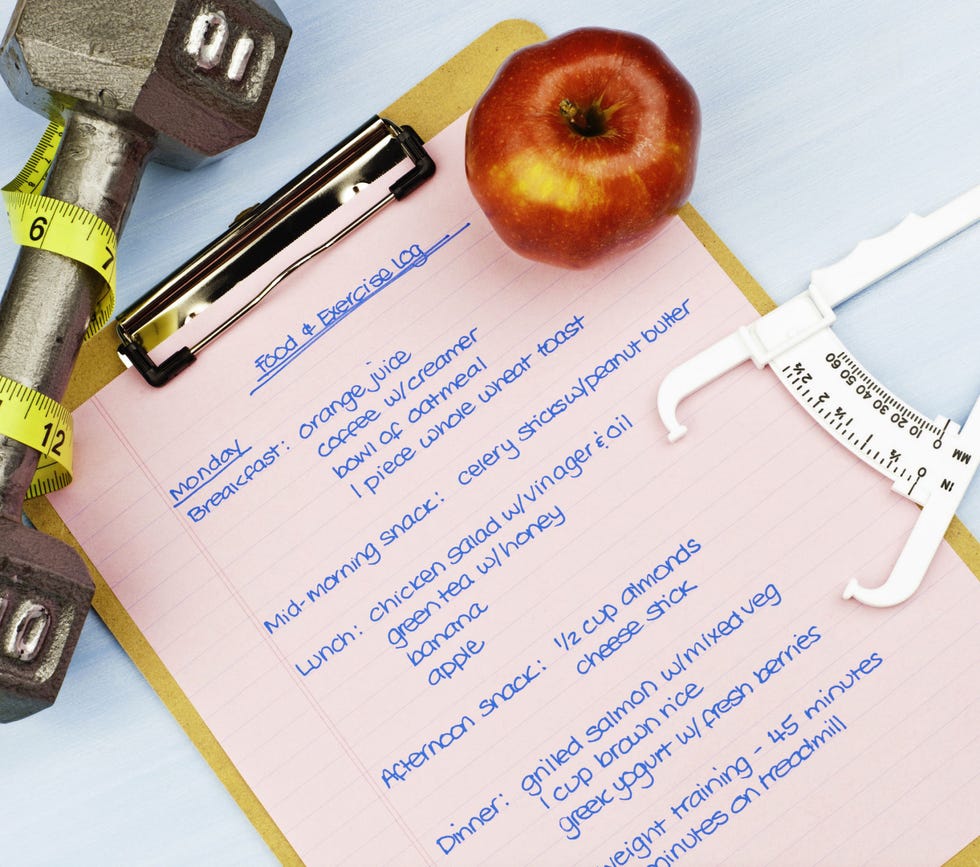 10
6
7
12
10
Food & Exercise Log
Monday
Breakfast: orange juice
coffee w/creamer
bowl of oatmeal
1 piece whole wheat toast
Mid-morning snack: celery sticks w/peanut butter
Lunch: chicken salad w/vinager & oil
green tea w/honey
banana
apple
Afternoon snack: 1/2 cup almonds
cheese stick
Dinner: grilled salmon w/mixed veg
1 cup brown rice
greek yogurt w/fresh berries
weight training - 45 minutes
minutes on treadmill
0 10 20 30 40 50 60
MM
0 ½ 1 1½ 2 2½
IN